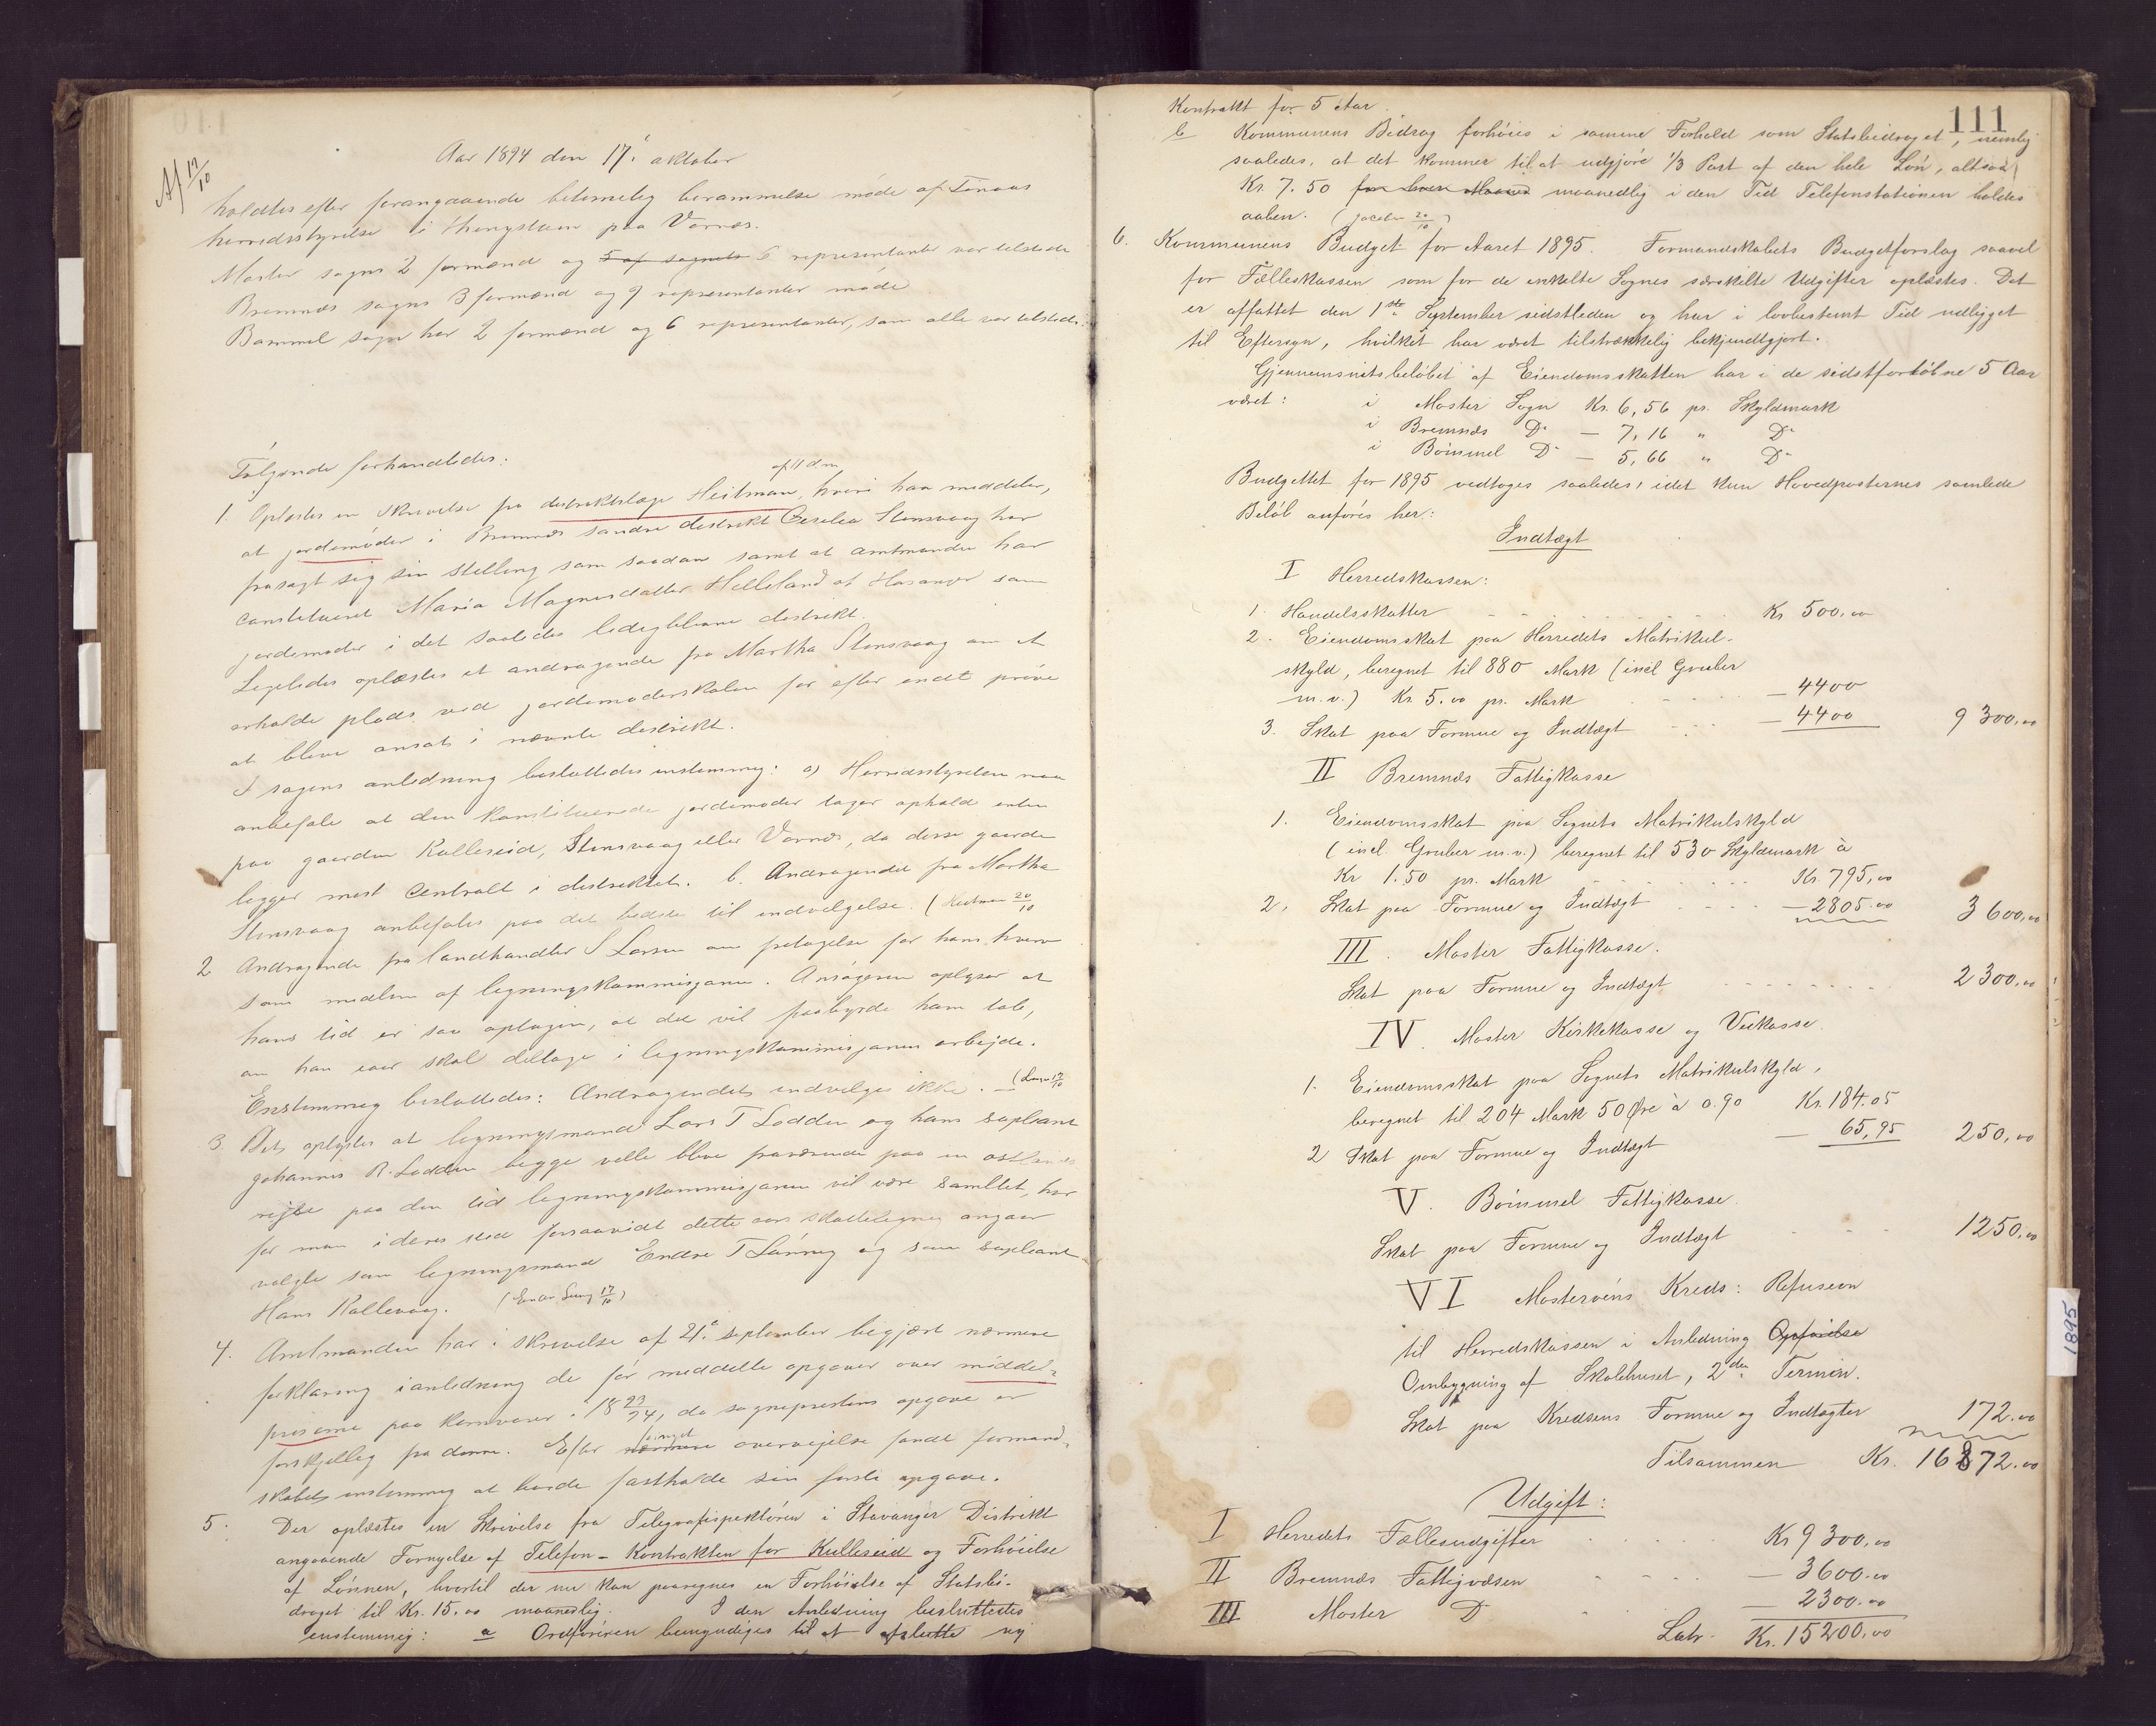 Af 17/10
Aar 1894 den 17. oktober
holdtes efter forangaaende betimelig berammelse møde af Finaas
herredsstyrelse i thingstuen paa Vornæs.
Moster sogns 2 formænd og 5 af sognets 6 representanter var tilstede
Bremnæs sogns 3 formænd og 9 representanter møde
Bømmel sogn har 2 formænd og 6 representanter, som alle var tilstede.
Følgende forhandledes:
af 11 dm
1. Oplæstes en skrivelse fra distriktslæge Heitman, hvori han meddeler,
at jordemoder i Bremnæs søndre distrikt Cesilia Stensvaag har
frasagt sig sin stelling som saadan samt at amtmanden har
constitueret Maria Magnesdatter Helleland af Hosanger som
jordemoder i det saaledes ledigblevne distrikt.
Ligeledes oplæstes et andragende fra Martha Stensvaag om at
erholde plads ved jordemoderskolen for efter endt prøve
at blive ansat i nævnte distrikt.
I sagens anledning besluttedes enstemmig: a) Herredsstyrelsen maa
anbefale at den konstituerede jordemoder tager ophold enten
paa gaarden Kulleseid, Stensvaag eller Vornæs, da disse gaarde
ligger mest centralt i distriktet. b. Andragendet fra Martha
Stensvaag anbefales paa det bedste til indvilgelse. (Heitman 20/10
2 Andragende fra landhandler S Larsen om fritagelse for hans hverv
som medlem af ligningskommisjonen. Ansøgeren oplyser at
hans tid er saa optagen, at det vil paabyrde ham tab,
om han iaar skal deltage i ligningskommisjonens arbejde.
Enstemmig besluttedes: Andragendet indvilges ikke. (Larsen 17/10
3 Det oplystes at ligningsmand Lars T Lodden og hans supleant
Johannes R. Lodden begge ville blive fraværende paa en
rejse paa den tid ligningskommisjonen vil være samlet, hvor
for man i deres sted forsaavidt dette aars skatteligning angaar
valgte som ligningsmand Endre T Lønning og som supleant
Hans Kallevaag. (17/10)
4. Amtmanden har i skrivelse af 21. september begjært nærmere
forklaring i anledning de før meddelte opgaver over middel-
priserne paa kornvarer i 18 93/94, da sogneprestens opgave er
forskjellig fra denne. Efter nærmere overvejelse fandt formand-
skabet enstemmig at burde fastholde sin første opgave.
5. Der oplæstes en Skrivelse fra Telegrafinspektøren i Stavanger Distrikt
angaaende Fornyelse af Telefon-Kontrakten for Kulleseid og Forhøielse
af Lønnen, hvortil der nu kan paaregnes en Forhøielse af Statsbi-
draget til Kr. 15.00 maanedlig. I den Anledning besluttedes
enstemmig: a Ordføreren bemyndiges til at afslutte ny
111
Kontrakt for 5 Aar.
b Kommunens Bidrag forhøies i samme Forhold som Statsbidraget, nemlig
saaledes, at det kommer til at udgjøre 1/3 Part af den hele Løn, altsaa
Kr. 7.50 for hver Maaned maanedlig i den Tid Telefonstationen holdes
aaben. (20/10)
6. Kommunens Budget for Aaret 1895. Formandskabets Budgetforslag saavel
for Fælleskassen som for de enkelte Sognes særskilte Udgifter oplæstes. Det
er affattet den 1ste September sidstleden og har i lovbestemt Tid udligget
til Eftersyn, hvilket har været tilstrækkelig bekjendtgjort.
Gjennemsnitsbeløbet af Eiendomsskatten har i de sidstforløbne 5 Aar
været: i Moster Sogn Kr. 6,56 pr. Skyldmark
i Bremnæs Do - 7,16 " Do
i Bømmel Do - 5,66 " Do
Budgettet for 1895 vedtoges saaledes, idet kun Hovedposternes samlede
Beløb anføres her:
Indtægt
I Herredskassen:
1. Handelsskatter Kr 500.00
2. Eiendomsskat paa Herredets Matrikul-
skyld, beregnet til 880 Mark (incl Gruber
m.v.) Kr 5.00 pr. Mark - 4400
3. Skat paa Formue og Indtægt - 4400 9 300.00
II Bremnæs Fattigkasse
1. Eiendomsskat paa Sognets Matrikulskyld
(incl. Gruber m.v.) beregnet til 530 Skyldmark à
Kr 1.50 pr. Mark Kr 795,00
2. Skat paa Formue og Indtægt - 2805.00 3 600.00
III. Moster Fattigkasse.
Skat paa Formue og Indtægt 2 300.00
IV. Moster Kirkekasse og Veikasse.
1. Eiendomsskat paa Sognets Matrikulskyld,
beregnet til 204 Mark 50 Øre à 0.90 Kr. 184.05
2 Skat paa Formue og Indtægt - 65,95 250,00
V. Bømmel Fattigkasse.
Skat paa Formue og Indtægt 1250.00
VI Mosterøens Kreds: Refusion
til Herredskassen i Anledning Opførelse
Ombygning af Skolehuset, 2den Termin.
Skat paa Kredsens Formue og Indtægter 172.00
Tilsammen Kr. 16872.00
Udgift:
I Herredets Fællesudgifter Kr 9 300.00
II Bremnæs Fattigvæsen - 3600.00
III Moster Do - 2300.00
Latr. Kr. 15200.00
1895